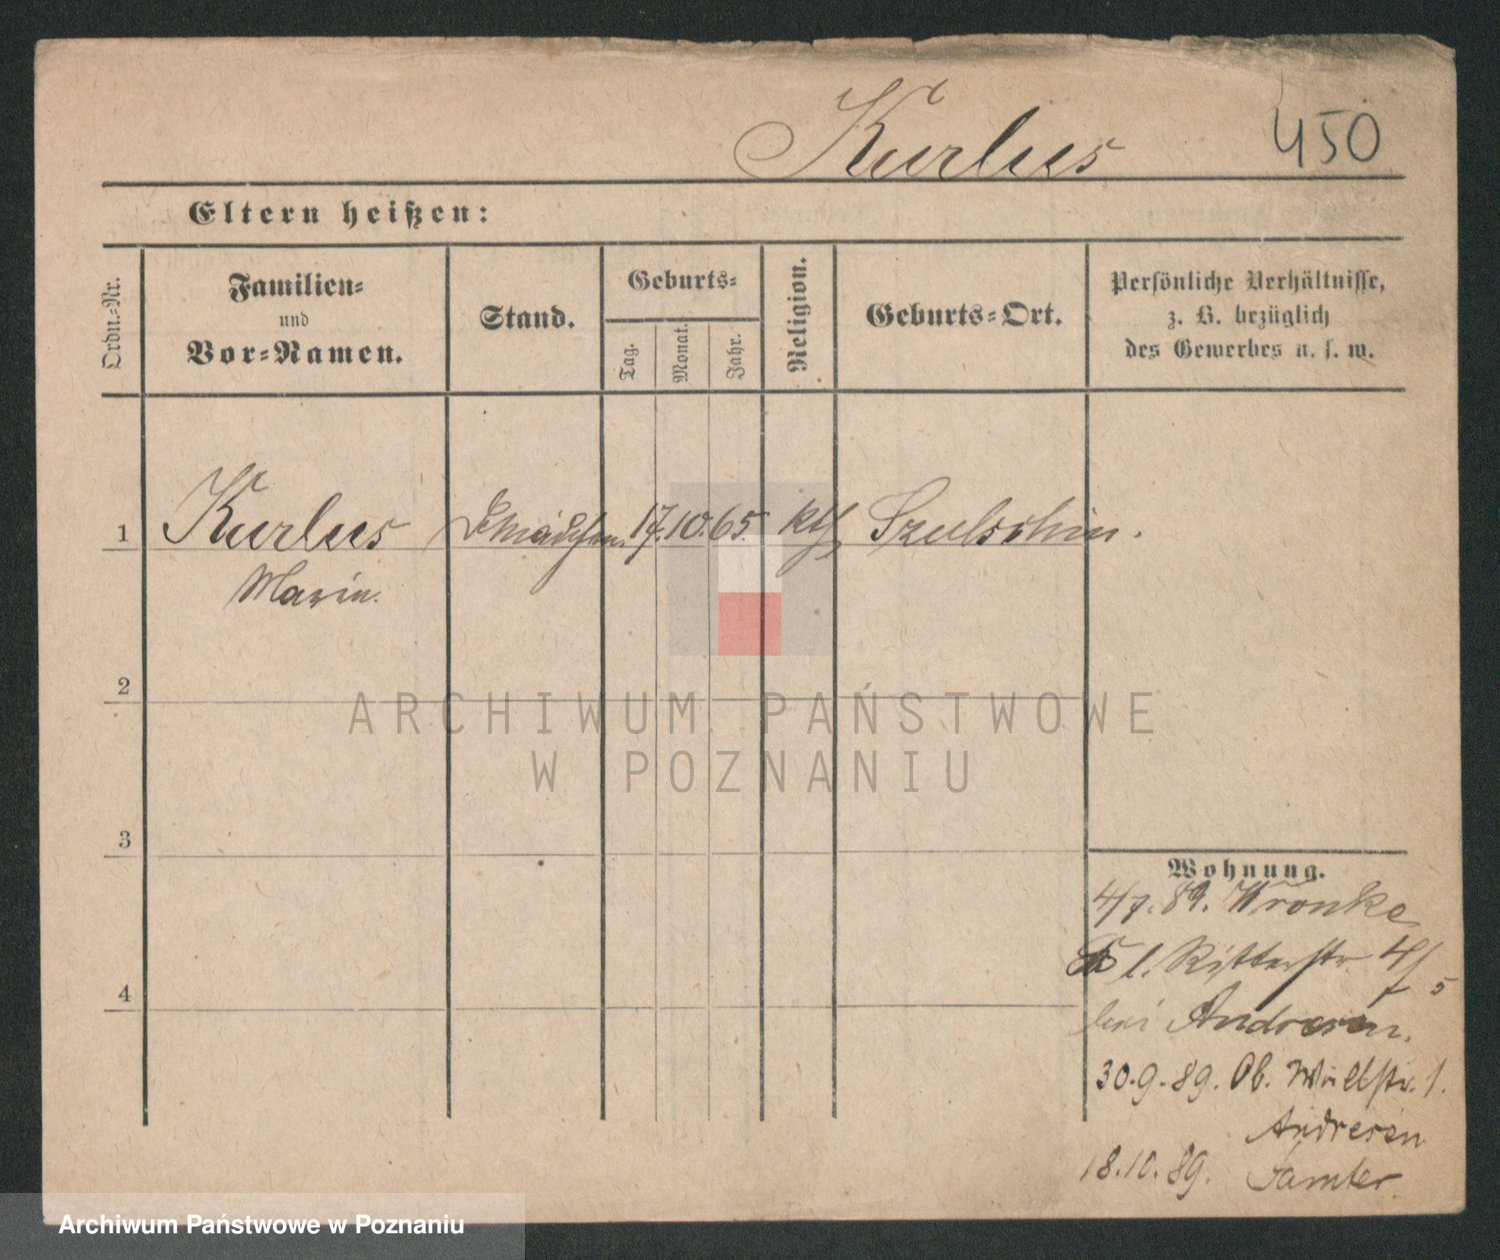 Kurlus 450
Eltern heißen:
Ordn.-Nr.
Familien-
und
Vor-Namen.
Stand.
Geburts-
Tag.
Monat.
Jahr.
Religion.
Geburts-Ort.
Persönliche Verhältnisse,
z. B. bezüglich
des Gewerbes u. s. w.
1 Kurlus 17. 10. 65. kth
Marie.
2
ARCHIWUM PAŃSTWOWE
W POZNANIU
3
Wohnung.
4/7. 89. Wronke
l. Ritterstr. 4/5
4
bei Andresen.
30.9.89. Ob. Wallstr. 1.
Andresen
18.10.89. Samter.
Archiwum Państwowe w Poznaniu